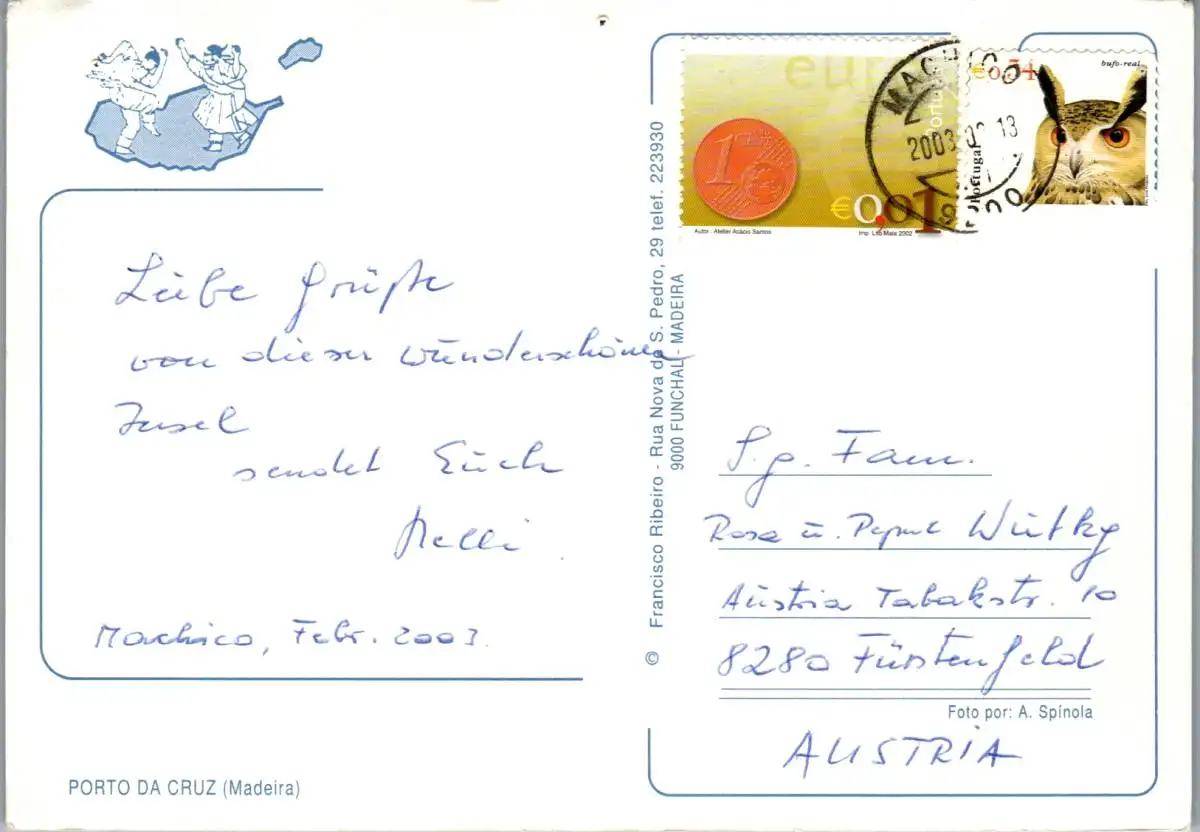 Liebe Grüße
von dieser wunderschönen
Insel
sendet Euch
Nelli.
Machico, Febr. 2003.
PORTO DA CRUZ (Madeira)
© Francisco Ribeiro - Rua Nova de S. Pedro, 29 telef. 223930
9000 FUNCHAL - MADEIRA
euro
1
Portugal
€0,01
Autor: Atelier Acácio Santos
Imp. Lito Maia 2002
MACHICO
2003 13
€0,54
bufo-real
Portugal
S.g. Fam.
Rosa u. Wutky
Austria Tabakstr. 10
8280 Fürstenfeld
Foto por: A. Spínola
AUSTRIA